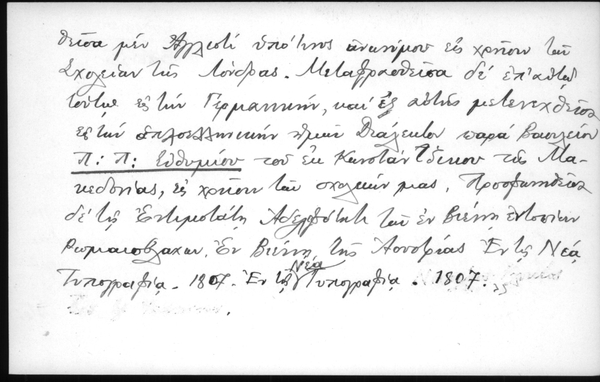 θεῖσα μὲν Ἀγγλιστὶ ὑπό τινος ἀνωνύμου εἰς χρῆσιν τῶν
Σχολείων τῆς Λόνδρας. Μεταφρασθεῖσα δὲ ἐπ' αὐτῷ
τούτῳ εἰς τὴν Γερμανικήν, καὶ ἐξ αὐτῆς μετενεχθεῖσα
εἰς τὴν ἁπλοελληνικὴν ἡμῶν διάλεκτον παρὰ Βασιλείου
Π: Π: Εὐθυμίου τοῦ ἐκ Κωσταντζικου τῆς Μα-
κεδονίας, εἰς χρῆσιν τῶν σχολείων μας. Προσφωνηθεῖσα
δὲ τῇ Ἐντιμοτάτῃ Ἀδελφότητι τῶν ἐν Βιέννῃ ἐντοπίων
Ῥωμαιοβλάχων. Ἐν Βιέννῃ τῆς Αουστρίας Ἐν τῇ Νέᾳ
Τυπογραφίᾳ. 1807. Ἐν τῇ Νέᾳ Τυπογραφίᾳ. 1807.